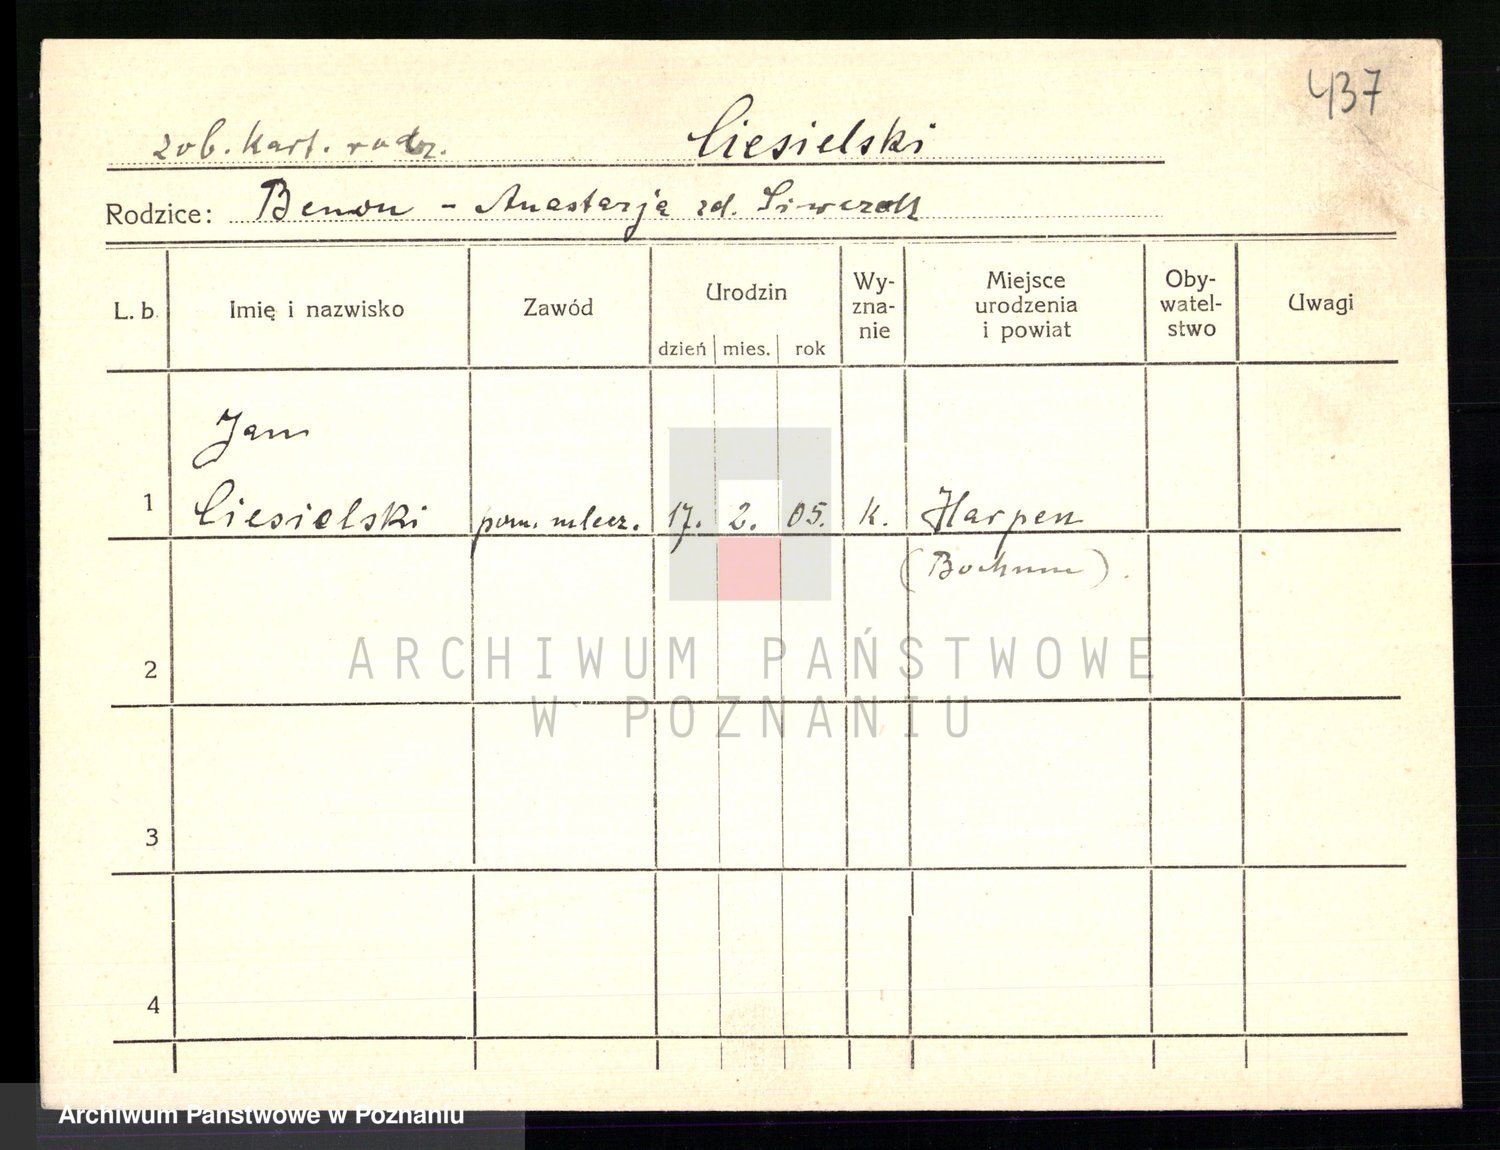 437
zob. Kart. rodz. Ciesielski
Rodzice: Benon - Anastazja zd. Siwczak
L. b. Imię i nazwisko Zawód Urodzin Wyznanie Miejsce urodzenia i powiat Obywatelstwo Uwagi
dzień mies. rok
Jan
1 Ciesielski pom. mlecz. 17. 2. 05. K. Harpen
(Bochum).
2
ARCHIWUM PAŃSTWOWE
W POZNANIU
3
4
Archiwum Państwowe w Poznaniu